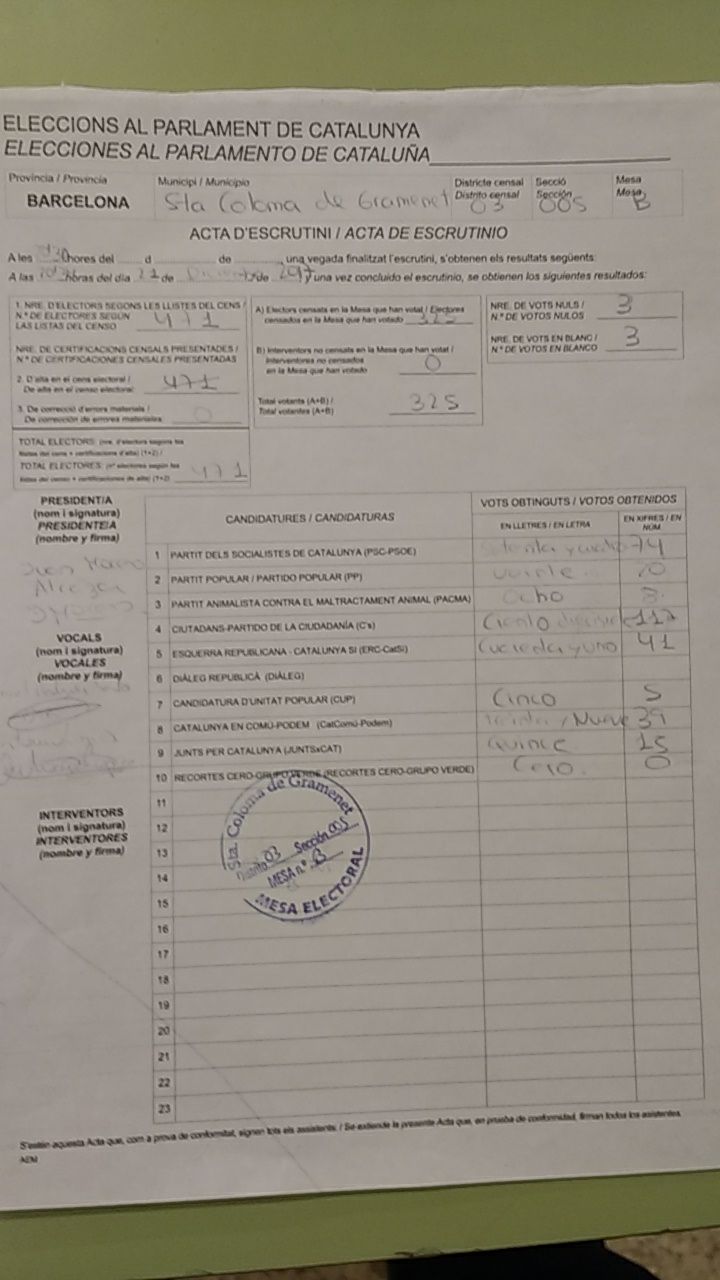 ELECCIONS AL PARLAMENT DE CATALUNYA
ELECCIONES AL PARLAMENTO DE CATALUÑA
Provincia / Provincia Municipi / Municipio Districte censal Secció Mesa
BARCELONA Sta Coloma de Gramenet Distrito censal Sección Mesa
03 005 B
ACTA D'ESCRUTINI / ACTA DE ESCRUTINIO
A les hores del d de , una vegada finalitzat l'escrutini, s'obtenen els resultats següents:
A las horas del día 21 de Diciembre de y una vez concluido el escrutinio, se obtienen los siguientes resultados:
1. NRE. D'ELECTORS SEGONS LES LLISTES DEL CENS /
N.º DE ELECTORES SEGÚN
LAS LISTAS DEL CENSO 471
NRE. DE CERTIFICACIONS CENSALS PRESENTADES /
N.º DE CERTIFICACIONES CENSALES PRESENTADAS
2. D'alta en el cens electoral /
De alta en el censo electoral: 471
3. De correcció d'errors materials /
De corrección de errores materiales 0
TOTAL ELECTORS: (nre. d'electors segons les
llistes del cens + certificacions d'alta) (1+2) /
TOTAL ELECTORES: (nº electores según las
listas del censo + certificaciones de alta) (1+2) 471
A) Electors censats en la Mesa que han votat / Electores
censados en la Mesa que han votado 325
B) Interventors no censats en la Mesa que han votat /
Interventores no censados
en la Mesa que han votado 0
Total votants (A+B) /
Total votantes (A+B) 325
NRE. DE VOTS NULS /
N.º DE VOTOS NULOS 3
NRE. DE VOTS EN BLANC /
N.º DE VOTOS EN BLANCO 3
PRESIDENT/A
(nom i signatura)
PRESIDENTE/A
(nombre y firma)
VOCALS
(nom i signatura)
VOCALES
(nombre y firma)
INTERVENTORS
(nom i signatura)
INTERVENTORES
(nombre y firma)
CANDIDATURES / CANDIDATURAS VOTS OBTINGUTS / VOTOS OBTENIDOS
EN LLETRES / EN LETRA EN XIFRES / EN NÚM
1 PARTIT DELS SOCIALISTES DE CATALUNYA (PSC-PSOE) 74
2 PARTIT POPULAR / PARTIDO POPULAR (PP) veinte 20
3 PARTIT ANIMALISTA CONTRA EL MALTRACTAMENT ANIMAL (PACMA) ocho 8
4 CIUTADANS-PARTIDO DE LA CIUDADANÍA (C's) Ciento 117
5 ESQUERRA REPUBLICANA - CATALUNYA SÍ (ERC-CatSí) 41
6 DIÀLEG REPUBLICÀ (DIÀLEG)
7 CANDIDATURA D'UNITAT POPULAR (CUP) Cinco 5
8 CATALUNYA EN COMÚ-PODEM (CatComú-Podem) treinta y Nueve 39
9 JUNTS PER CATALUNYA (JUNTSxCAT) Quince 15
10 RECORTES CERO-GRUPO VERDE (RECORTES CERO-GRUPO VERDE) Cero. 0
11
12
13
14
15
16
17
18
19
20
21
22
23
Sta. Coloma de Gramenet
Distrito 03 Sección 005
MESA n.º B
MESA ELECTORAL
S'estén aquesta Acta que, com a prova de conformitat, signen tots els assistents. / Se extiende la presente Acta que, en prueba de conformidad, firman todos los asistentes.